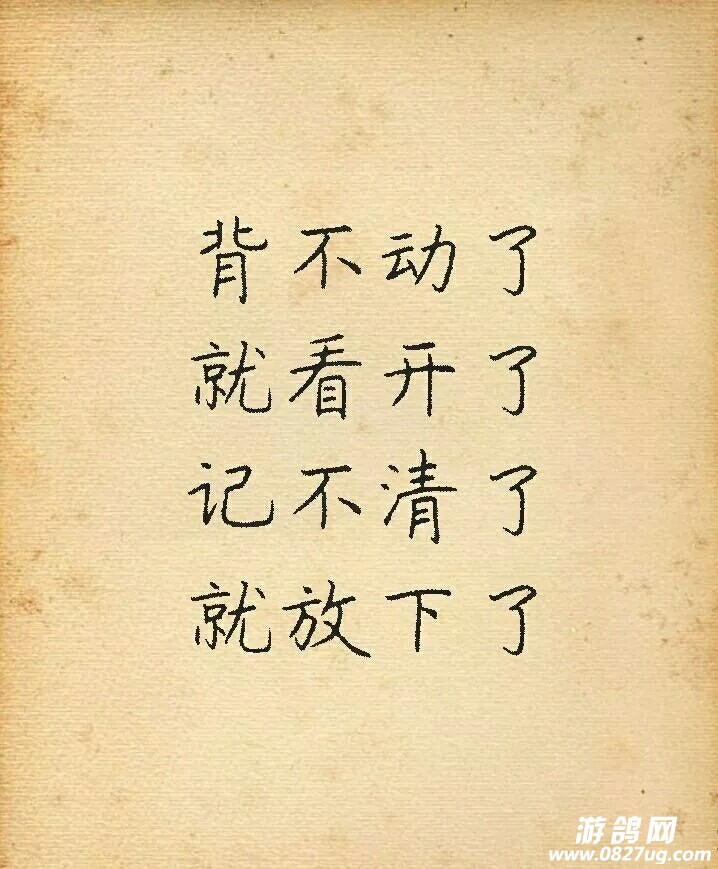 背不动了
就看开了
记不清了
就放下了
游鸽网
www.0827ug.com